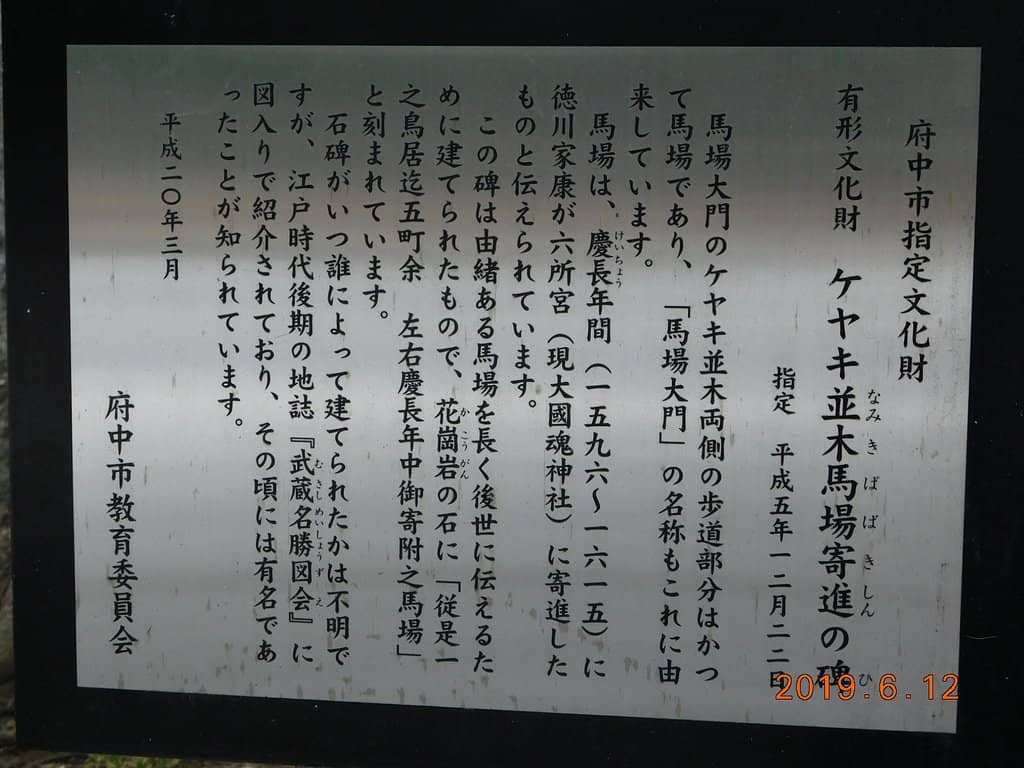 府中市指定文化財
有形文化財　ケヤキ並木馬場寄進の碑
なみきばばきしん　ひ
指定　平成五年一二月二二日
馬場大門のケヤキ並木両側の歩道部分はかつ
て馬場であり、「馬場大門」の名称もこれに由
来しています。
馬場は、慶長年間（一五九六～一六一五）に
けいちょう
徳川家康が六所宮（現大國魂神社）に寄進した
ものと伝えられています。
この碑は由緒ある馬場を長く後世に伝えるた
めに建てられたもので、花崗岩の石に「従是一
かこうがん
之鳥居迄五町余　左右慶長年中御寄附之馬場」
と刻まれています。
石碑がいつ誰によって建てられたかは不明で
すが、江戸時代後期の地誌『武蔵名勝図会』に
むさしめいしょうずえ
図入りで紹介されており、その頃には有名であ
ったことが知られています。
平成二〇年三月
府中市教育委員会
2019.6.12